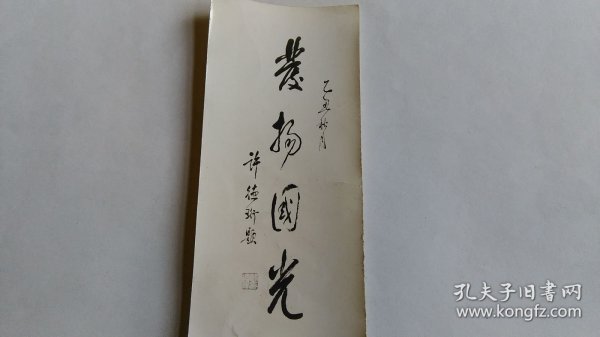 乙丑秋月
發扬國光
许德珩题
孔夫子旧书网
www.kongfz.com